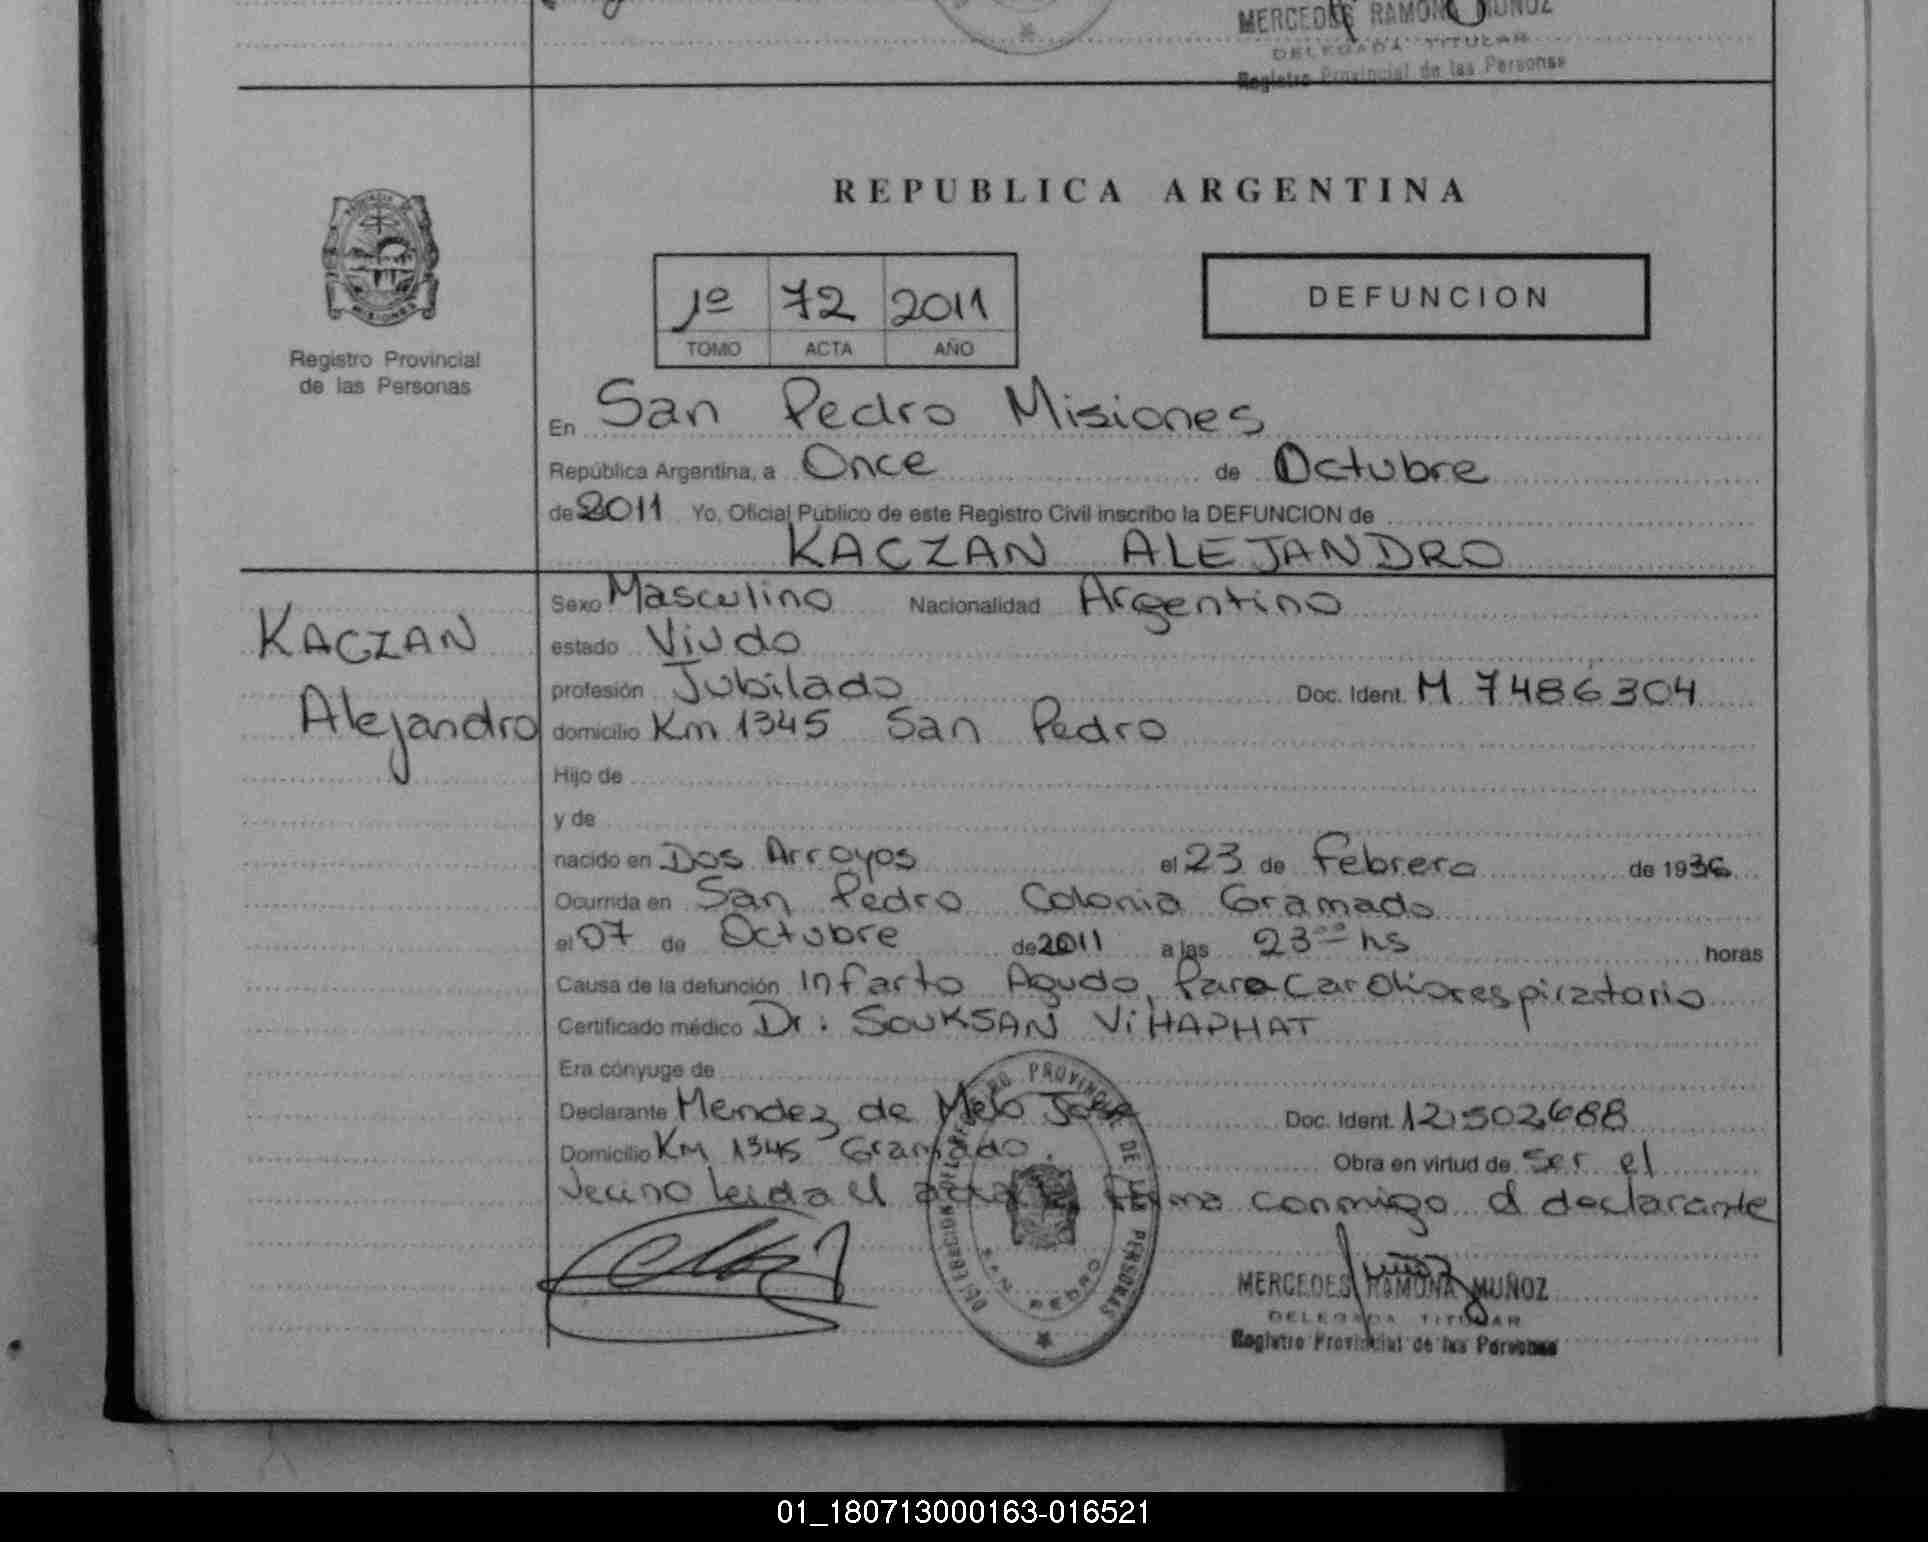 MERCEDES RAMONA MUÑOZ
DELEGADA TITULAR
Registro Provincial de las Personas
REPUBLICA ARGENTINA
1º 72 2011
TOMO ACTA AÑO
DEFUNCION
MISIONES
Registro Provincial
de las Personas
En San Pedro Misiones
República Argentina, a Once de Octubre
de 2011 Yo, Oficial Público de este Registro Civil inscribo la DEFUNCION de
KACZAN ALEJANDRO
KACZAN
Alejandro
Sexo Masculino Nacionalidad Argentino
estado Viudo
profesión Jubilado Doc. Ident. M 7486304
domicilio Km 1345 San Pedro
Hijo de
y de
nacido en Dos Arroyos el 23 de Febrero de 1936
Ocurrida en San Pedro Colonia Gramado
el 07 de Octubre de 2011 a las 23 hs horas
Causa de la defunción Infarto Agudo, Paro Cardiorespiratorio
Certificado médico Dr: SOUKSAN ViHAPHAT
Era cónyuge de
Declarante Mendez de Melo Jose Doc. Ident. 12.502688
Domicilio Km 1345 Gramado. Obra en virtud de Ser el
vecino leida el acta la firma conmigo el declarante
SAN PEDRO
MERCEDES RAMONA MUÑOZ
DELEGADA TITULAR
Registro Provincial de las Personas
01_180713000163-016521